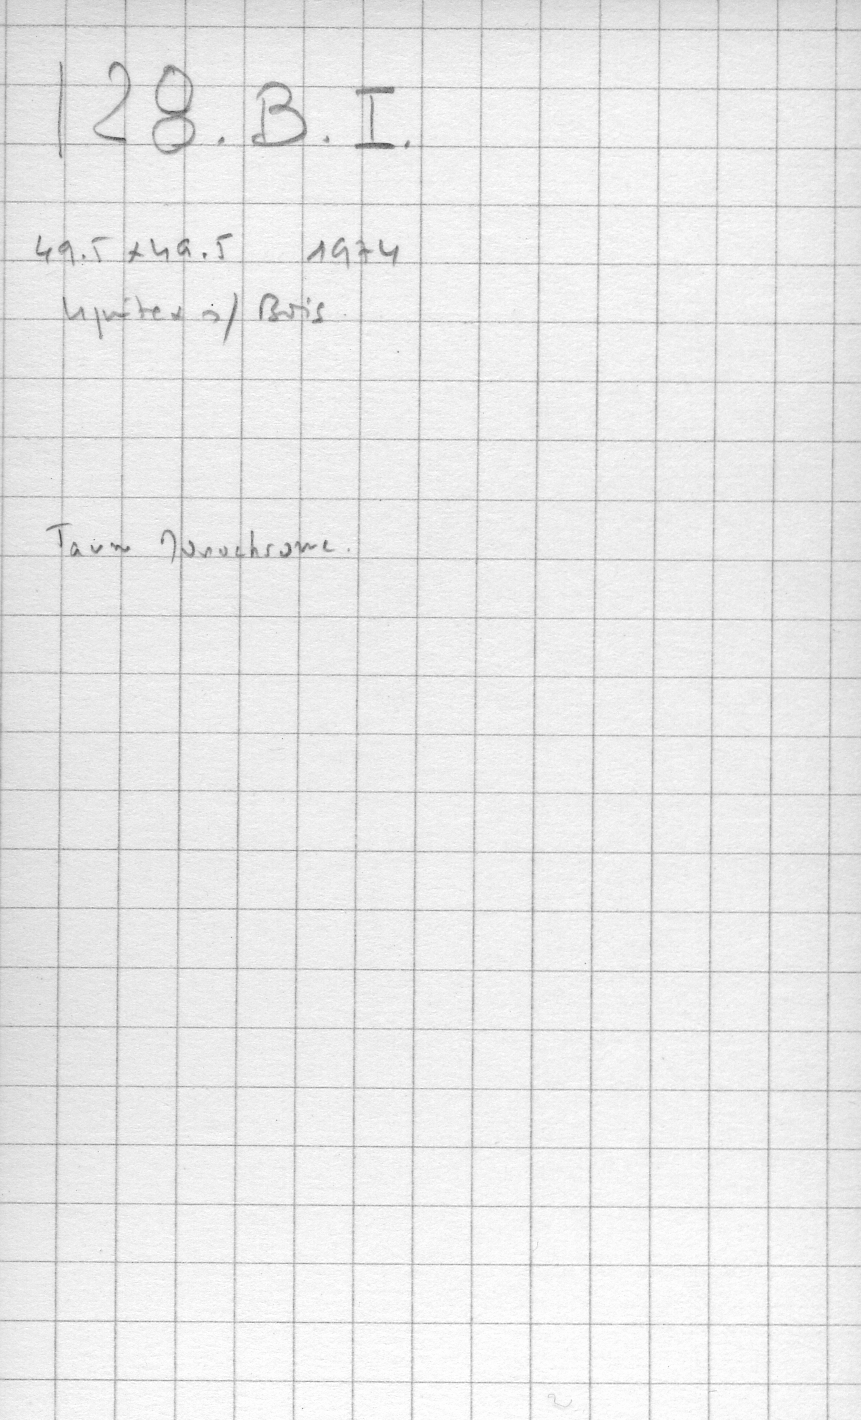 128. B. I.
49.5 x 49.5 1974
s/ Bois
Monochrome.